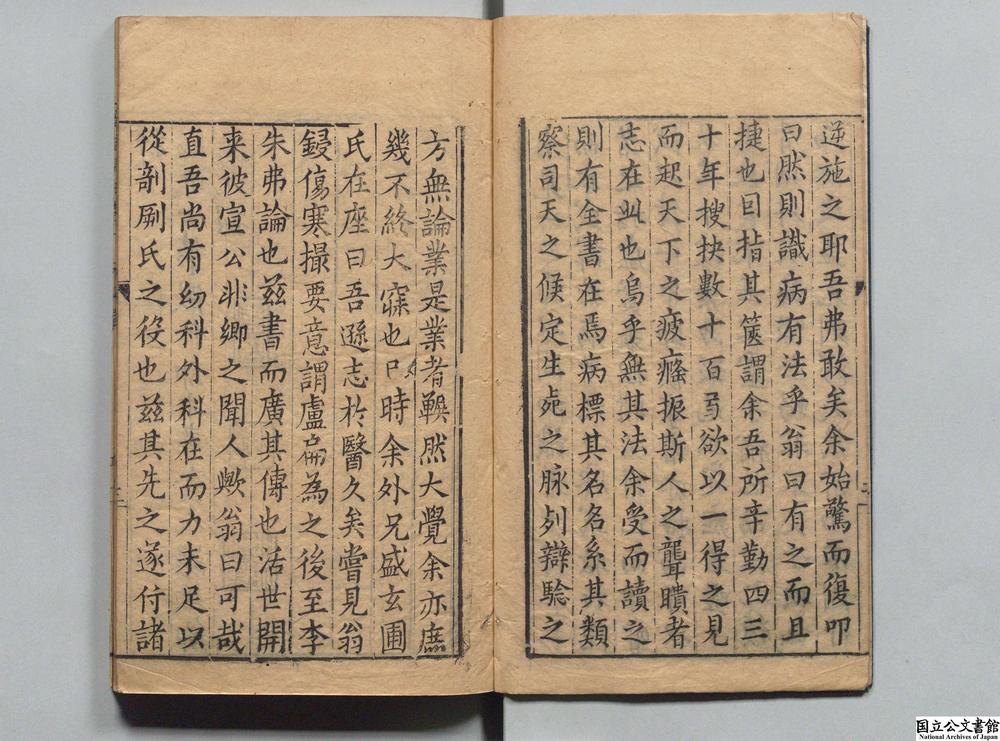 逆施之耶吾弗敢矣余始驚而復叩
曰然則識病有法乎翁曰有之而且
捷也因指其篋謂余吾所辛勤四三
十年搜抉數十百䓁欲以一得之見
而起天下之疲癃振斯人之聾聵者
志在此也烏乎無其法余受而讀之
則有全書在焉病標其名名系其類
察司天之候定生死之脉列辯騐之
方無論業是業者䩄然大覺余亦庶
幾不終大寐也已時余外兄盛玄圃
氏在座曰吾遜志於醫久矣嘗見翁
鋟傷寒撮要意謂盧扁為之後至李
朱弗論也茲書而廣其傳也活世開
来彼宣公非卿之聞人歟翁曰可哉
直吾尚有幼科外科在而力未足以
從剞劂氏之役也茲其先之遂付諸
国立公文書館
National Archives of Japan